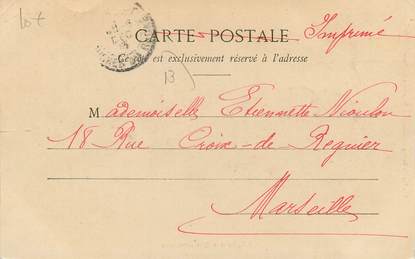 lot
CARTE POSTALE Imprimé
Ce côté est exclusivement réservé à l'adresse
13
Mademoiselle Etiennette Nioulou
18 Rue Croix-de Regnier
Marseille